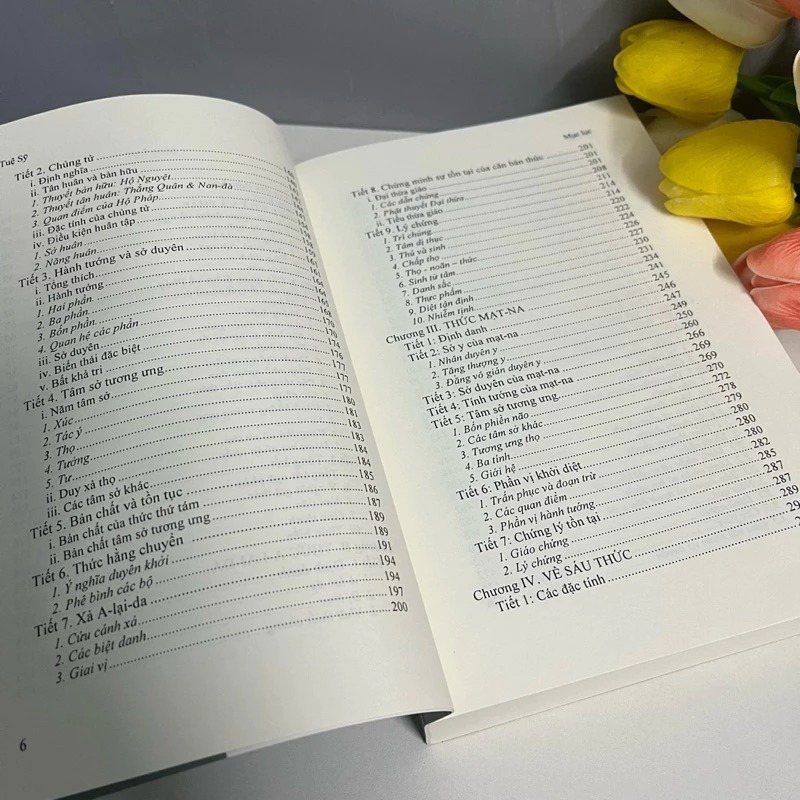 Tuệ Sỹ
Tiết 2. Chủng tử
i. Định nghĩa
ii. Tân huân và bản hữu
1. Thuyết bản hữu: Hộ Nguyệt
2. Thuyết tân huân: Thắng Quân & Nan-đà
3. Quan điểm của Hộ Pháp
iii. Đặc tính của chủng tử
iv. Điều kiện huân tập
1. Sở huân
2. Năng huân
Tiết 3. Hành tướng và sở duyên
i. Tổng thích
ii. Hành tướng
1. Hai phần
2. Ba phần
3. Bốn phần
4. Quan hệ các phần
iii. Sở duyên 170
iv. Biến thái đặc biệt 174
v. Bất khả tri 176
Tiết 4. Tâm sở tương ưng 177
i. Năm tâm sở 177
1. Xúc 180
2. Tác ý 181
3. Thọ 183
4. Tưởng 183
5. Tư 184
ii. Duy xả thọ 184
iii. Các tâm sở khác 185
Tiết 5. Bản chất và tồn tục 186
i. Bản chất của thức thứ tám 187
ii. Bản chất tâm sở tương ưng 189
Tiết 6. Thức hằng chuyển 189
1. Ý nghĩa duyên khởi 191
2. Phê bình các bộ 194
Tiết 7. Xả A-lại-da 194
1. Cứu cánh xả 197
2. Các biệt danh 200
3. Giai vị
6
Mục lục
Tiết 8. Chứng minh sự tồn tại của căn bản thức 201
i. Đại thừa giáo 201
1. Các dẫn chứng 201
2. Phật thuyết Đại thừa 208
ii. Tiểu thừa giáo 211
Tiết 9. Lý chứng 214
1. Trì chủng 214
2. Tâm dị thục 220
3. Thú và sinh 222
4. Chấp thọ 224
5. Thọ - noãn – thức 227
6. Sinh tử tâm 230
7. Danh sắc 231
8. Thực phẩm 234
9. Diệt tận định 241
10. Nhiễm tịnh 245
Chương III. THỨC MẠT-NA 246
Tiết 1: Định danh 247
Tiết 2: Sở y của mạt-na 249
1. Nhân duyên y 250
2. Tăng thượng y 260
3. Đẳng vô gián duyên y 266
Tiết 3: Sở duyên của mạt-na 269
Tiết 4: Tính tướng của mạt-na 269
Tiết 5: Tâm sở tương ưng 270
1. Bốn phiền não 272
2. Các tâm sở khác 278
3. Tương ưng thọ 279
4. Ba tính 280
5. Giới hệ 280
Tiết 6: Phần vị khởi diệt 280
1. Trấn phục và đoạn trừ 282
2. Các quan điểm 285
3. Phần vị hành tướng 287
Tiết 7: Chứng lý tồn tại 287
1. Giáo chứng 289
2. Lý chứng
Chương IV. VỀ SÁU THỨC
Tiết 1: Các đặc tính